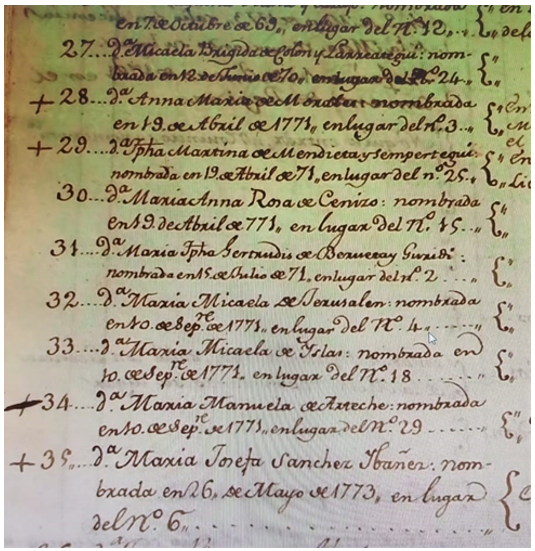 en 7 de Octubre de 69,, en lugar del Nº. 12,,
27... d.ª Micaela Brigida de Colon y Larreategui: nom-
brada en 12 de Junio de 70,, en lugar del Nº. 24..
+ 28... d.ª Anna Maria de : nombrada
en 19. de Abril de 1771,, en lugar del n.º 3...
+ 29... d.ª Jpha Martina de Mendieta y Sempertegui:
nombrada en 19. de Abril de 71,, en lugar del n.º 25..
30... d.ª Maria Anna Rosa de Cenizo: nombrada
en 19. de Abril de 771,, en lugar del Nº. 15...
31... d.ª Maria Jpha Gertrudis de Berueta y Guridi:
nombrada en 15. de Julio de 71,, en lugar del n.º 2 ....
32... d.ª Maria Micaela de Jerusalen: nombrada
en 10. de Sep.re de 1771,, en lugar del Nº. 4........
33... d.ª Maria Micaela de Yslas: nombrada en
10. de Sep.re de 1771. en lugar del Nº. 18 .......
+ 34... d.ª Maria Manuela de Arteche: nombrada
en 10. de Sep.re de 1771,, en lugar del Nº 29 ......
+ 35,,.. d.ª Maria Josefa Sanchez Ybañez: nom-
brada en 26,, de Mayo de 1773,, en lugar
del Nº 6,,..................